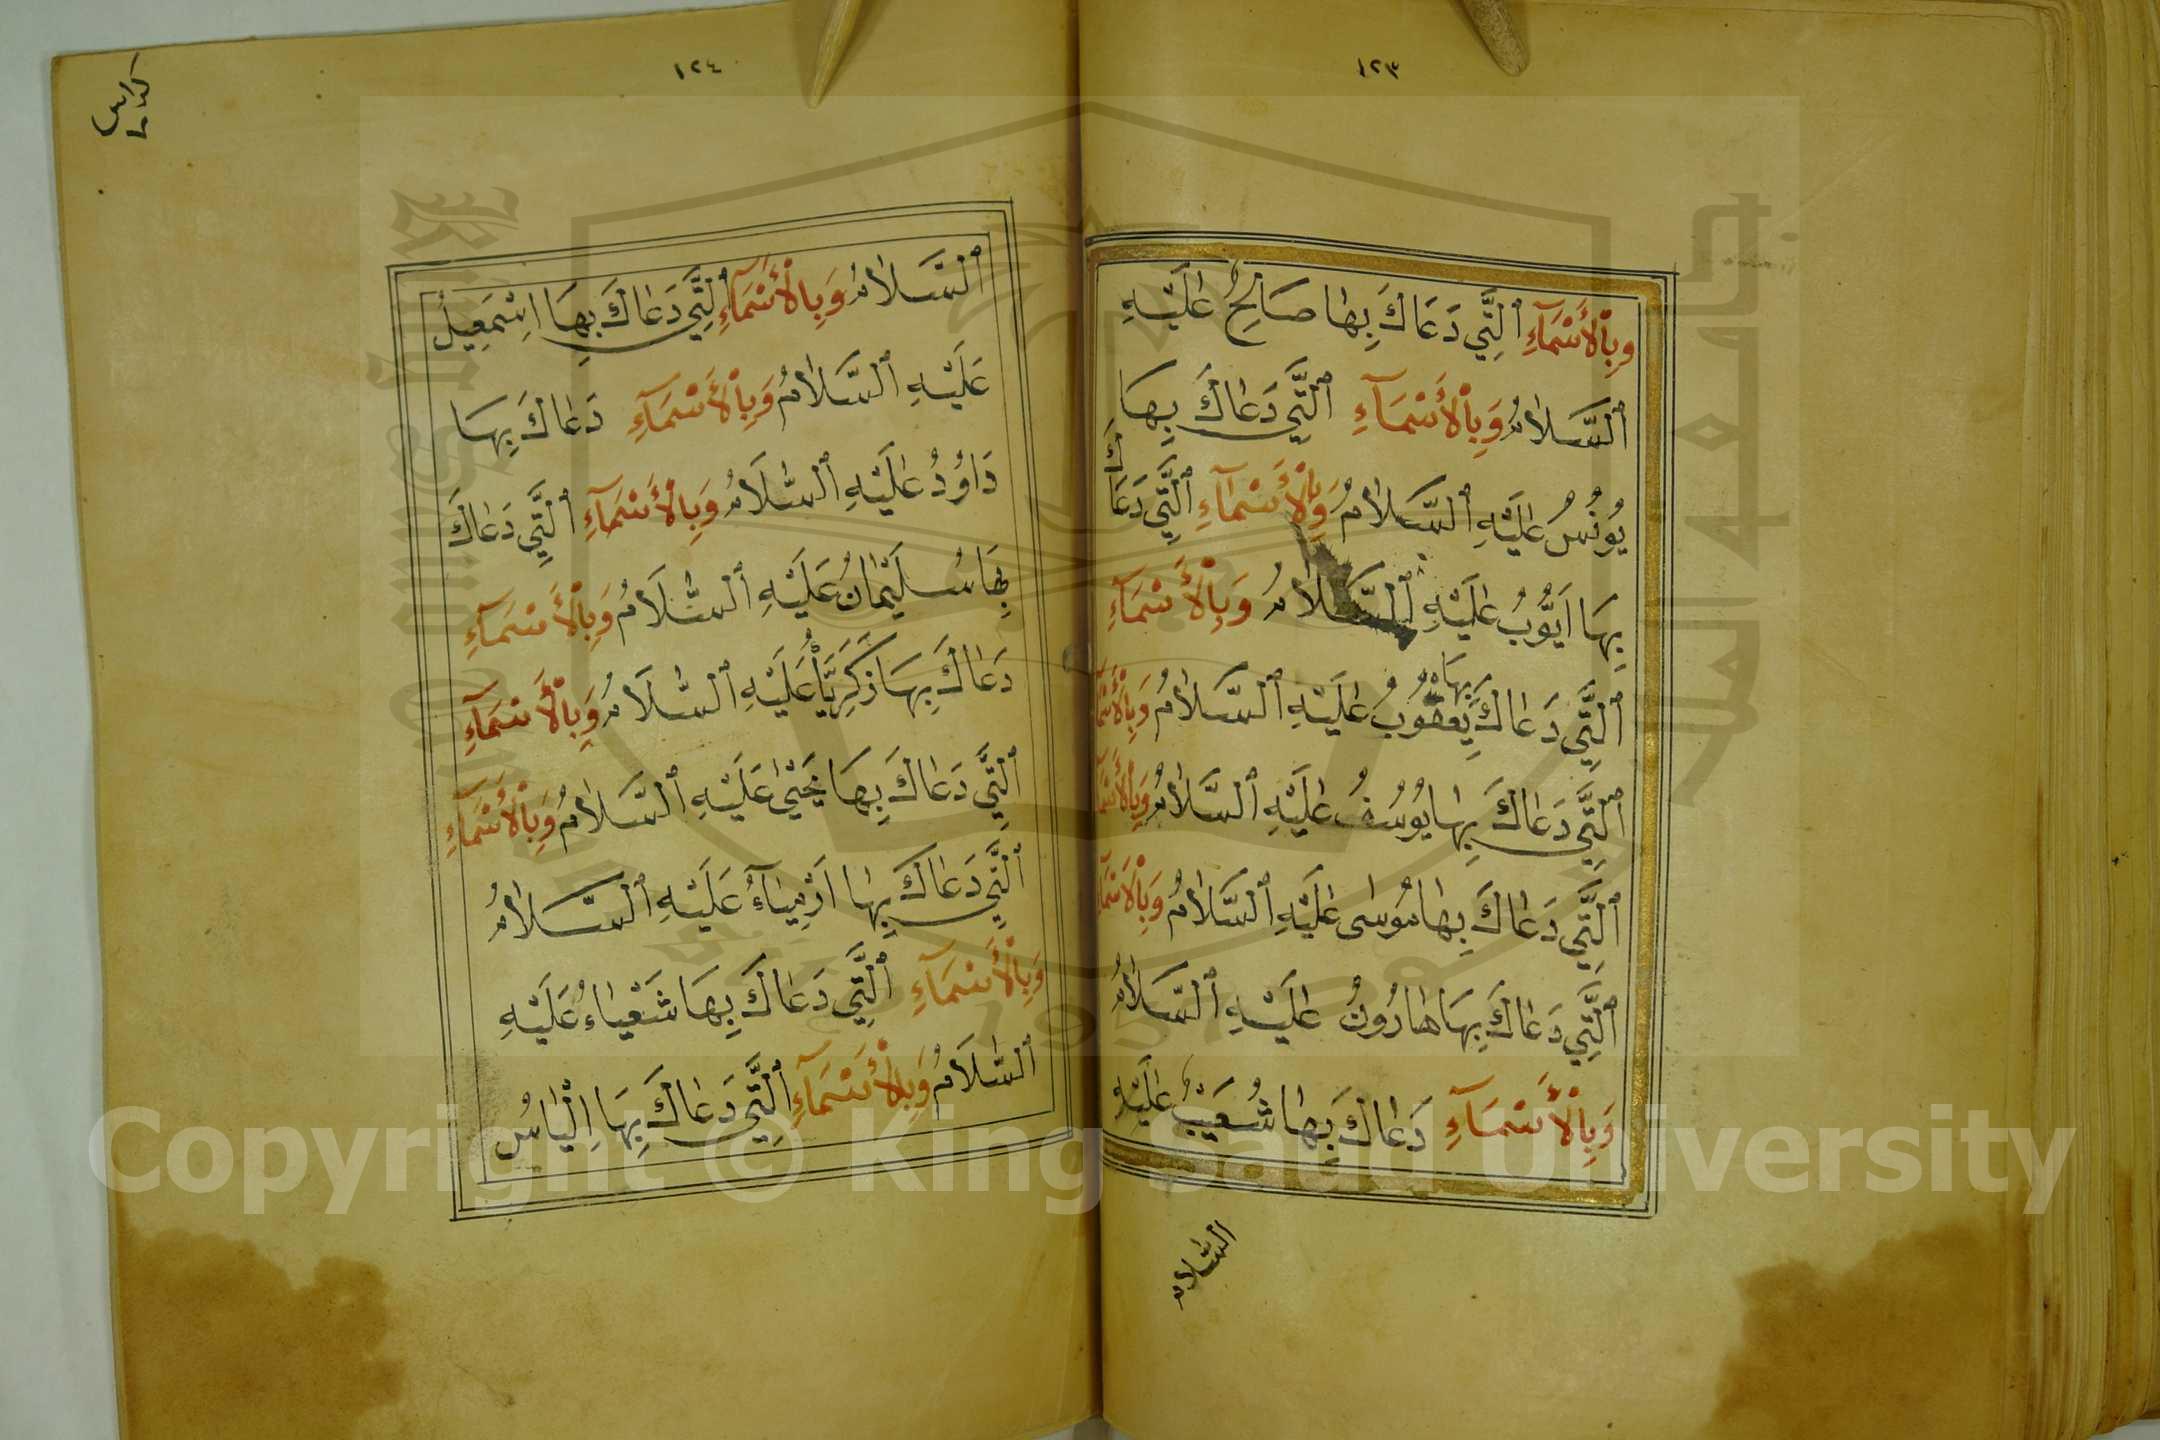 ١٢٣
وَبِالْأَسْمَآءِ ٱلَّتِي دَعَاكَ بِهَا صَالِحٌ عَلَيْهِ
ٱلسَّلَامُ وَبِالْأَسْمَآءِ ٱلَّتِي دَعَاكَ بِهَا
يُونُسُ عَلَيْهِ ٱلسَّلَامُ وَبِالْأَسْمَآءِ ٱلَّتِي دَعَاكَ
بِهَا اَيُّوبُ عَلَيْهِ ٱلسَّلَامُ وَبِالْأَسْمَآءِ
ٱلَّتِي دَعَاكَ بِهَا يَعْقُوبُ عَلَيْهِ ٱلسَّلَامُ وَبِالْأَسْمَآءِ
ٱلَّتِي دَعَاكَ بِهَا يُوسُفُ عَلَيْهِ ٱلسَّلَامُ وَبِالْأَسْمَآءِ
ٱلَّتِي دَعَاكَ بِهَا مُوسٰى عَلَيْهِ ٱلسَّلَامُ وَبِالْأَسْمَآءِ
ٱلَّتِي دَعَاكَ بِهَا هَارُونُ عَلَيْهِ ٱلسَّلَامُ
وَبِالْأَسْمَآءِ دَعَاكَ بِهَا شُعَيْبٌ عَلَيْهِ
ٱلسَّلَامُ
١٢٤
ٱلسَّلَامُ وَبِالْأَسْمَآءِ ٱلَّتِي دَعَاكَ بِهَا اِسْمَعِيلُ
عَلَيْهِ ٱلسَّلَامُ وَبِالْأَسْمَآءِ دَعَاكَ بِهَا
دَاوُدُ عَلَيْهِ ٱلسَّلَامُ وَبِالْأَسْمَآءِ ٱلَّتِي دَعَاكَ
بِهَا سُلَيْمَانُ عَلَيْهِ ٱلسَّلَامُ وَبِالْأَسْمَآءِ
دَعَاكَ بِهَا زَكَرِيَّاُ عَلَيْهِ ٱلسَّلَامُ وَبِالْأَسْمَآءِ
ٱلَّتِي دَعَاكَ بِهَا يَحْيٰى عَلَيْهِ ٱلسَّلَامُ وَبِالْأَسْمَآءِ
ٱلَّتِي دَعَاكَ بِهَا اَرْمِيَآءُ عَلَيْهِ ٱلسَّلَامُ
وَبِالْأَسْمَآءِ ٱلَّتِي دَعَاكَ بِهَا شَعْيَاءُ عَلَيْهِ
ٱلسَّلَامُ وَبِالْأَسْمَآءِ ٱلَّتِي دَعَاكَ بِهَا اِلْيَاسُ
Copyright © King Saud University